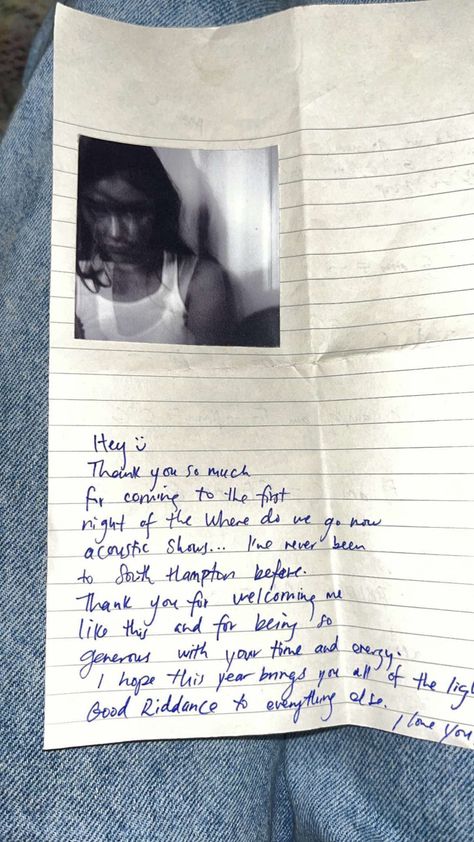 Hey :)
Thank you so much
for coming to the first
night of the Where do we go now
acoustic shows... I've never been
to South Hampton before.
Thank you for welcoming me
like this and for being so
generous with your time and energy.
I hope this year brings you all of the
Good Riddance to everything else.
I love you